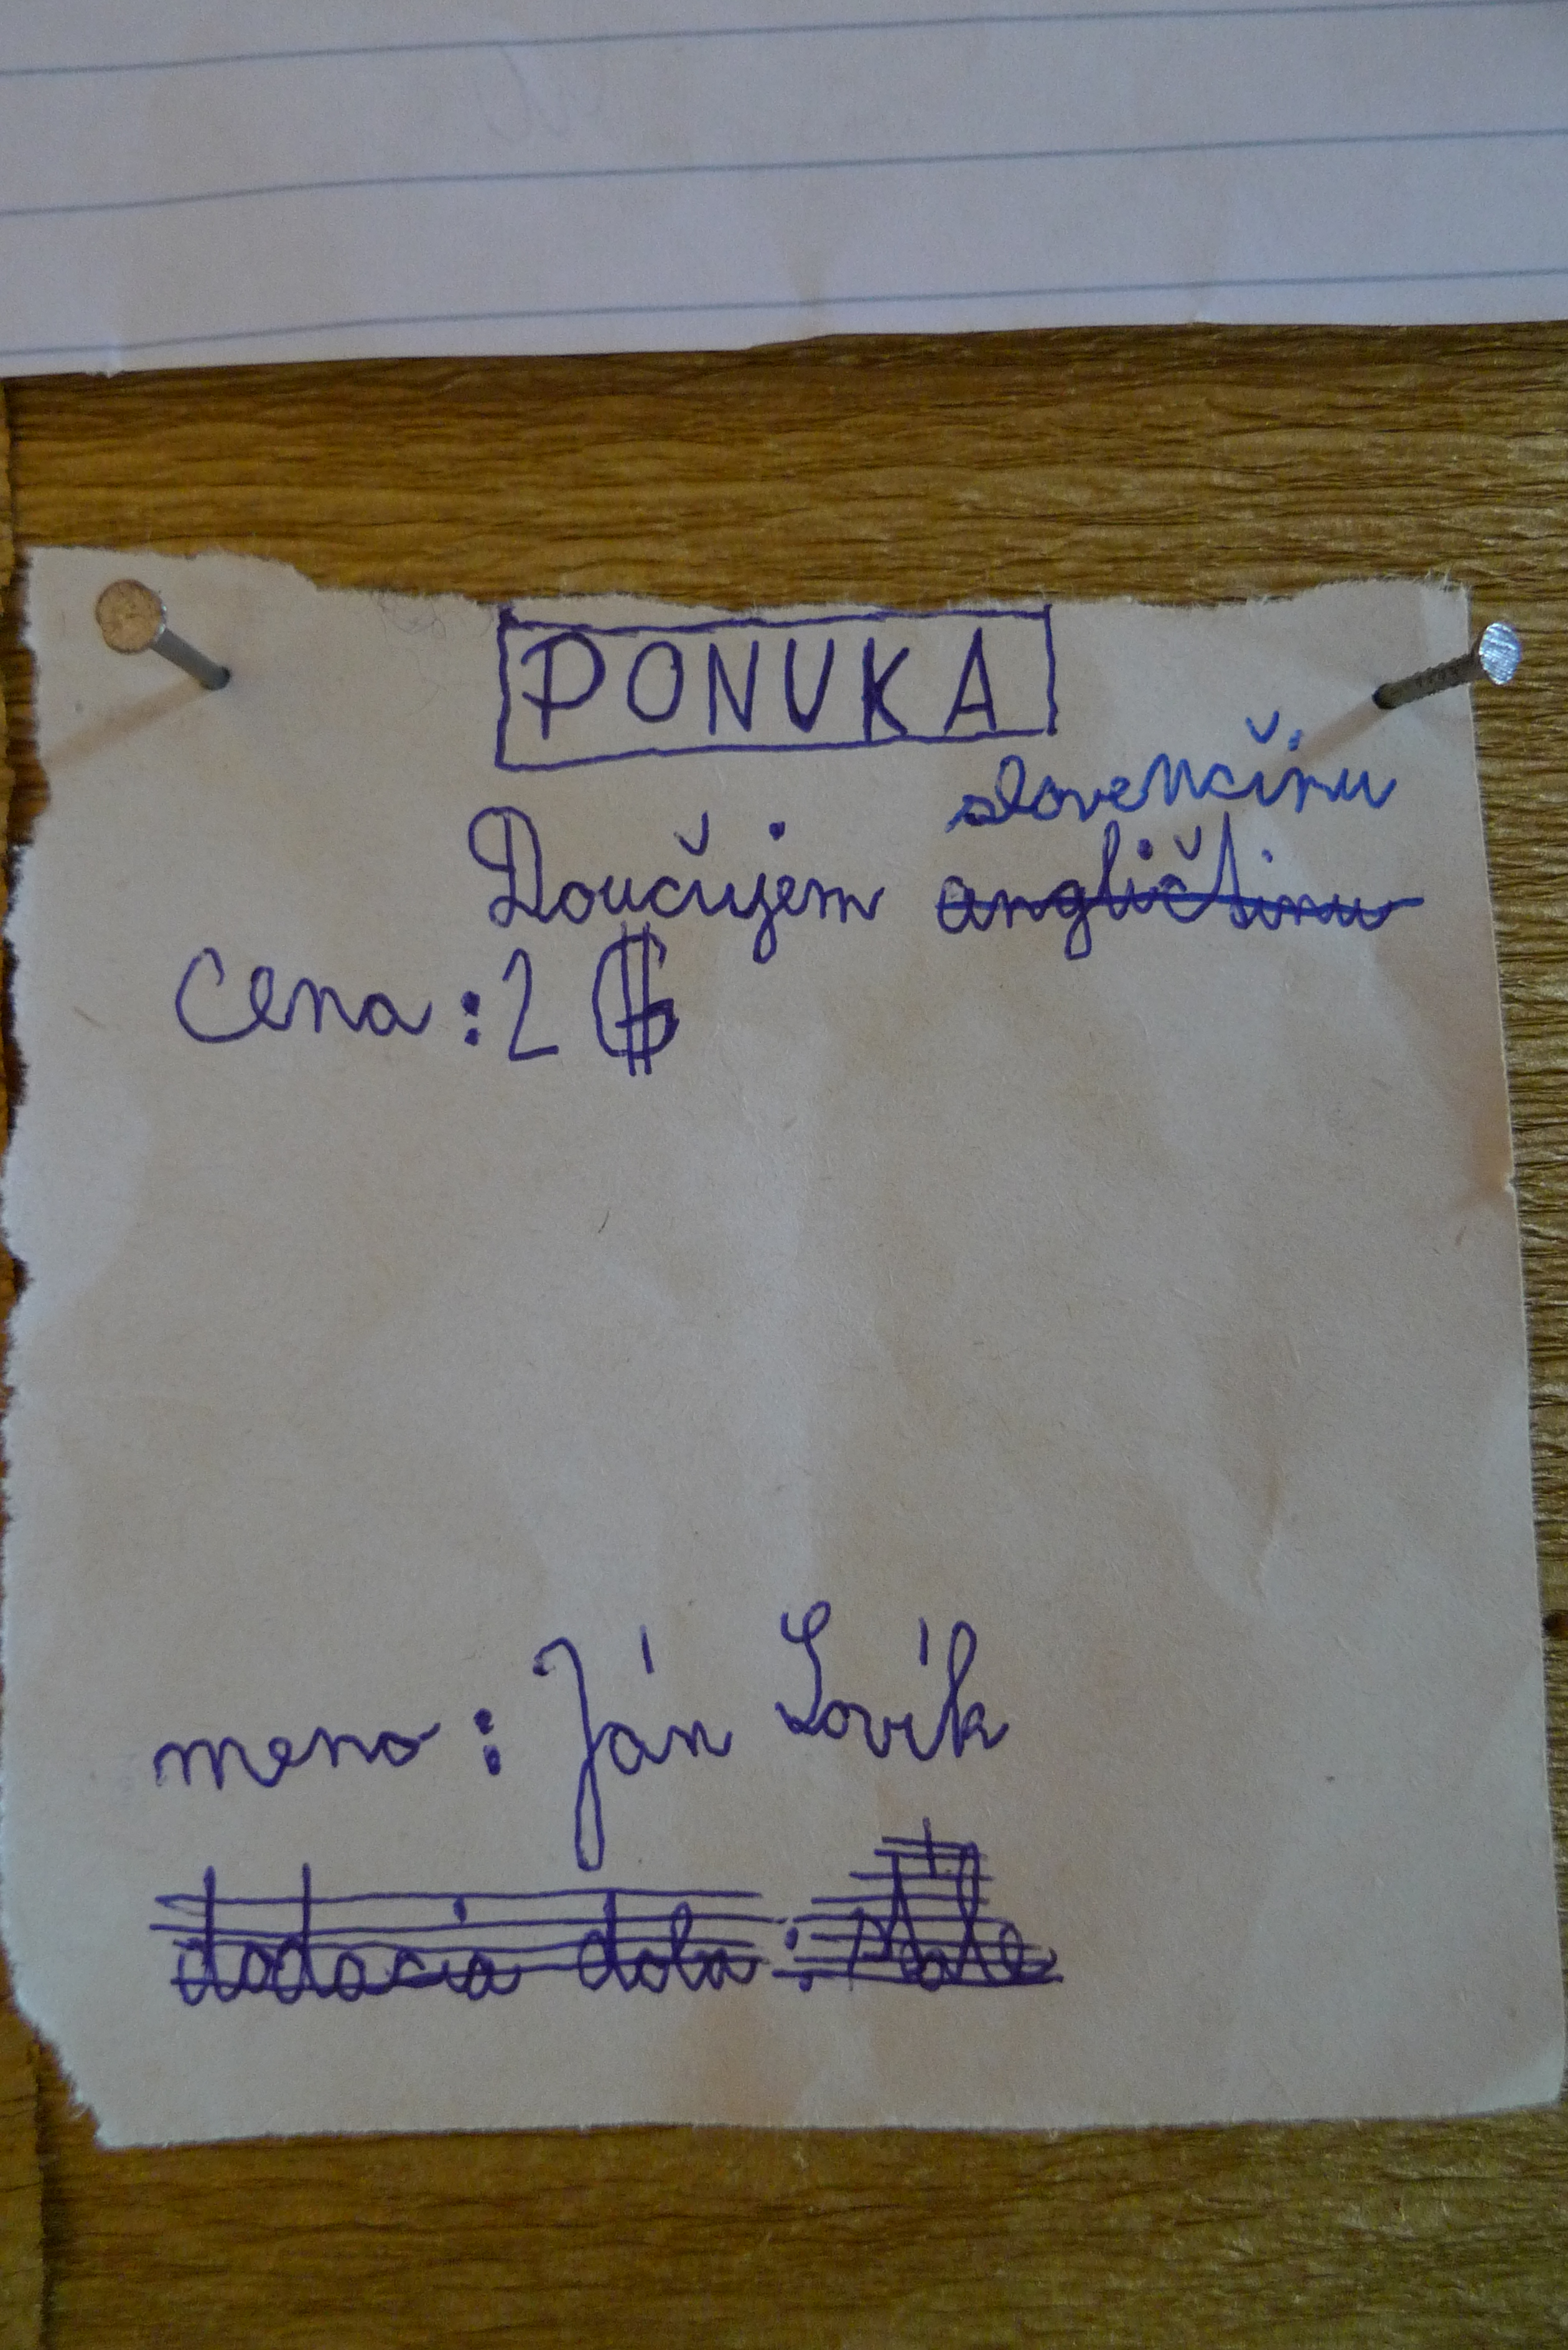 PONUKA
slovenčinu
Doučujem angličtinu
Cena: 2 $
meno: Ján Lovík
dodacia doba: